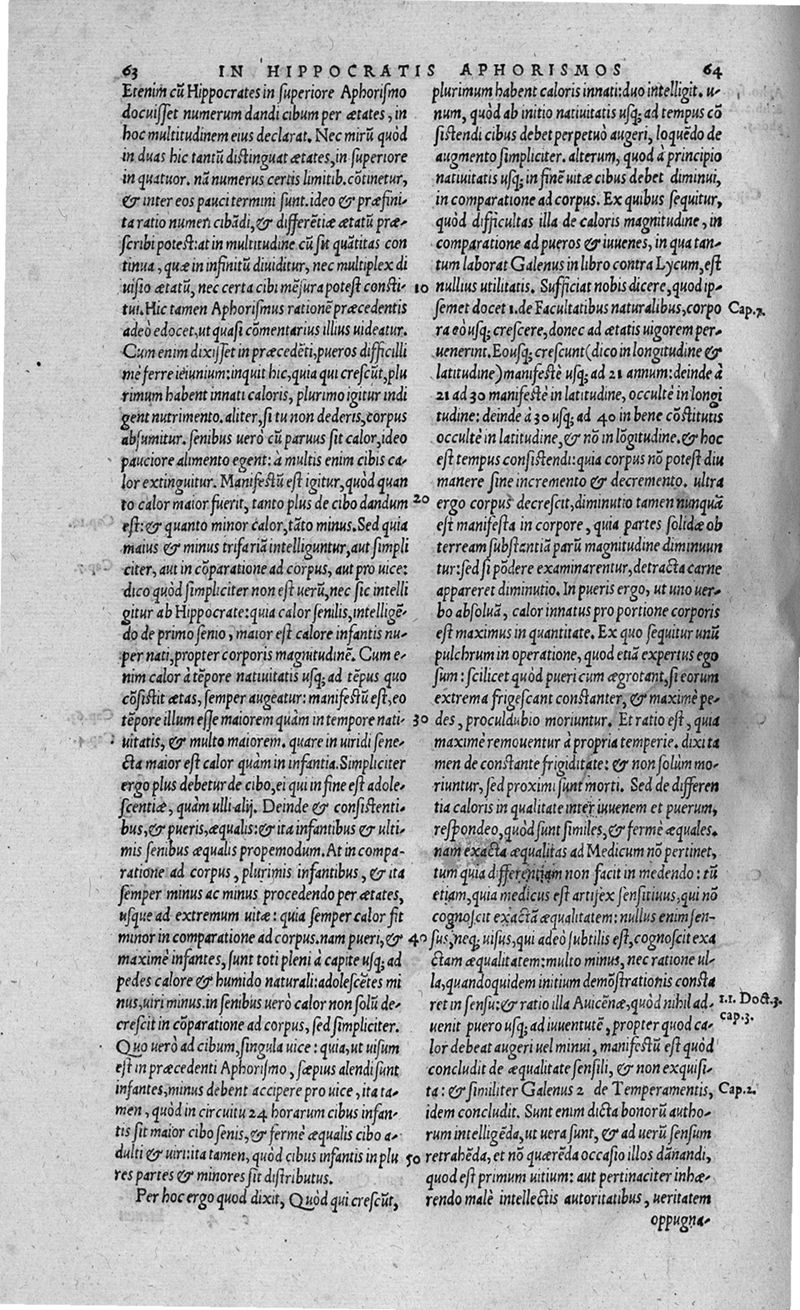 63 IN HIPPOCRATIS APHORISMOS 64
Etenim cũ Hippocrates in superiore Aphorismo
docuisset numerum dandi cibum per ætates, in
hoc multitudinem eius declarat. Nec mirũ quòd
in duas hic tantũ distinguat ætates, in superiore
in quatuor. nã numerus certis limitib. cõtinetur,
& inter eos pauci termini sunt. ideo & præfini-
ta ratio numeri cibãdi, & differẽtiæ ætatũ præ-
scribi potest: at in multitudine cũ sit quãtitas con
tinua, quæ in infinitũ diuiditur, nec multiplex di
uisio ætatũ, nec certa cibi mẽsura potest consti- 10
tui. Hic tamen Aphorismus rationẽ præcedentis
adeò edocet, ut quasi cõmentarius illius uideatur.
Cum enim dixisset in præcedẽti, pueros difficilli
mè ferre ieiunium: inquit hic, quia qui crescũt, plu
rimum habent innati caloris, plurimo igitur indi
gent nutrimento. aliter, si tu non dederis, corpus
absumitur. senibus uerò cũ paruus sit calor, ideo
pauciore alimento egent: à multis enim cibis ca-
lor extinguitur. Manifestũ est igitur, quòd quan
to calor maior fuerit, tanto plus de cibo dandum 20
est: & quanto minor calor, tãto minus. Sed quia
maius & minus trifariã intelliguntur, aut simpli
citer, aut in cõparatione ad corpus, aut pro uice:
dico quòd simpliciter non est uerũ, nec sic intelli
gitur ab Hippocrate: quia calor senilis, intelligẽ-
do de primo senio, maior est calore infantis nu-
per nati, propter corporis magnitudinẽ. Cum e-
nim calor à tẽpore natiuitatis usq; ad tẽpus quo
cõsistit ætas, semper augeatur: manifestũ est, eo
tẽpore illum esse maiorem quàm in tempore nati- 30
uitatis, & multo maiorem. quare in uiridi sene-
cta maior est calor quàm in infantia. Simpliciter
ergo plus debetur de cibo, ei qui in fine est adole-
scentiæ, quàm ulli alij. Deinde & consistenti-
bus, & pueris, æqualis: & ita infantibus & ulti-
mis senibus æqualis propemodum. At in compa-
ratione ad corpus, plurimis infantibus, & ita
semper minus ac minus procedendo per ætates,
usque ad extremum uitæ: quia semper calor fit
minor in comparatione ad corpus. nam pueri, & 40
maximè infantes, sunt toti pleni à capite usq; ad
pedes calore & humido naturali: adolescẽtes mi
nus, uiri minus. in senibus uerò calor non solũ de-
crescit in cõparatione ad corpus, sed simpliciter.
Quo uerò ad cibum, singula uice: quia, ut uisum
est in præcedenti Aphorismo, sæpius alendi sunt
infantes, minus debent accipere pro uice, ita ta-
men, quòd in circuitu 24 horarum cibus infan-
tis sit maior cibo senis, & fermè æqualis cibo a-
dulti & uiri: ita tamen, quòd cibus infantis in plu 50
res partes & minores sit distributus.
Per hoc ergo quod dixit, Quòd qui crescũt,
plurimum habent caloris innati: duo intelligit. u-
num, quòd ab initio natiuitatis usq; ad tempus cõ
sistendi cibus debet perpetuò augeri, loquẽdo de
augmento simpliciter. alterum, quod à principio
natiuitatis usq; in finẽ uitæ cibus debet diminui,
in comparatione ad corpus. Ex quibus sequitur,
quòd difficultas illa de caloris magnitudine, in
comparatione ad pueros & iuuenes, in qua tan-
tum laborat Galenus in libro contra Lycum, est
nullius utilitatis. Sufficiat nobis dicere, quod ip-
semet docet 1. de Facultatibus naturalibus, corpo Cap. 7.
ra eò usq; crescere, donec ad ætatis uigorem per-
uenerint. Eousq; crescunt (dico in longitudine &
latitudine) manifestè usq; ad 21 annum: deinde à
21 ad 30 manifestè in latitudine, occultè in longi
tudine: deinde à 30 usq; ad 40 in bene cõstitutis
occultè in latitudine, & nõ in lõgitudine. & hoc
est tempus consistendi: quia corpus nõ potest diu
manere sine incremento & decremento. ultra
ergo corpus decrescit, diminutio tamen nunquã
est manifesta in corpore, quia partes solidæ ob
terream substantiã parũ magnitudine diminuun
tur: sed si põdere examinarentur, detracta carne
appareret diminutio. In pueris ergo, ut uno uer-
bo absoluã, calor innatus pro portione corporis
est maximus in quantitate. Ex quo sequitur unũ
pulchrum in operatione, quod etiã expertus ego
sum: scilicet quòd pueri cum ægrotant, si eorum
extrema frigescant constanter, & maximè pe-
des, proculdubio moriuntur. Et ratio est, quia
maximè remouentur à propria temperie. dixi ta
men de constante frigiditate: & non solùm mo-
riuntur, sed proximi sunt morti. Sed de differen
tia caloris in qualitate inter iuuenem et puerum,
respondeo, quòd sunt similes, & fermè æquales.
nam exacta æqualitas ad Medicum nõ pertinet,
tum quia differentiam non facit in medendo: tũ
etiam, quia medicus est artifex sensitiuus, qui nõ
cognoscit exactã æqualitatem: nullus enim sen-
sus, neq; uisus, qui adeò subtilis est, cognoscit exa
ctam æqualitatem: multo minus, nec ratione ul-
la, quandoquidem initium demõstrationis consta
ret in sensu: & ratio illa Auicẽnæ, quòd nihil ad- 1.1. Doct. 3.
uenit puero usq; ad iuuentutẽ, propter quod ca- cap. 3.
lor debeat augeri uel minui, manifestũ est quòd
concludit de æqualitate sensili, & non exquisi-
ta: & similiter Galenus 2 de Temperamentis, Cap. 2.
idem concludit. Sunt enim dicta bonorũ autho-
rum intelligẽda, ut uera sunt, & ad uerũ sensum
retrahẽda, et nõ quærẽda occasio illos dãnandi,
quod est primum uitium: aut pertinaciter inhæ-
rendo malè intellectis autoritatibus, ueritatem
oppugna-